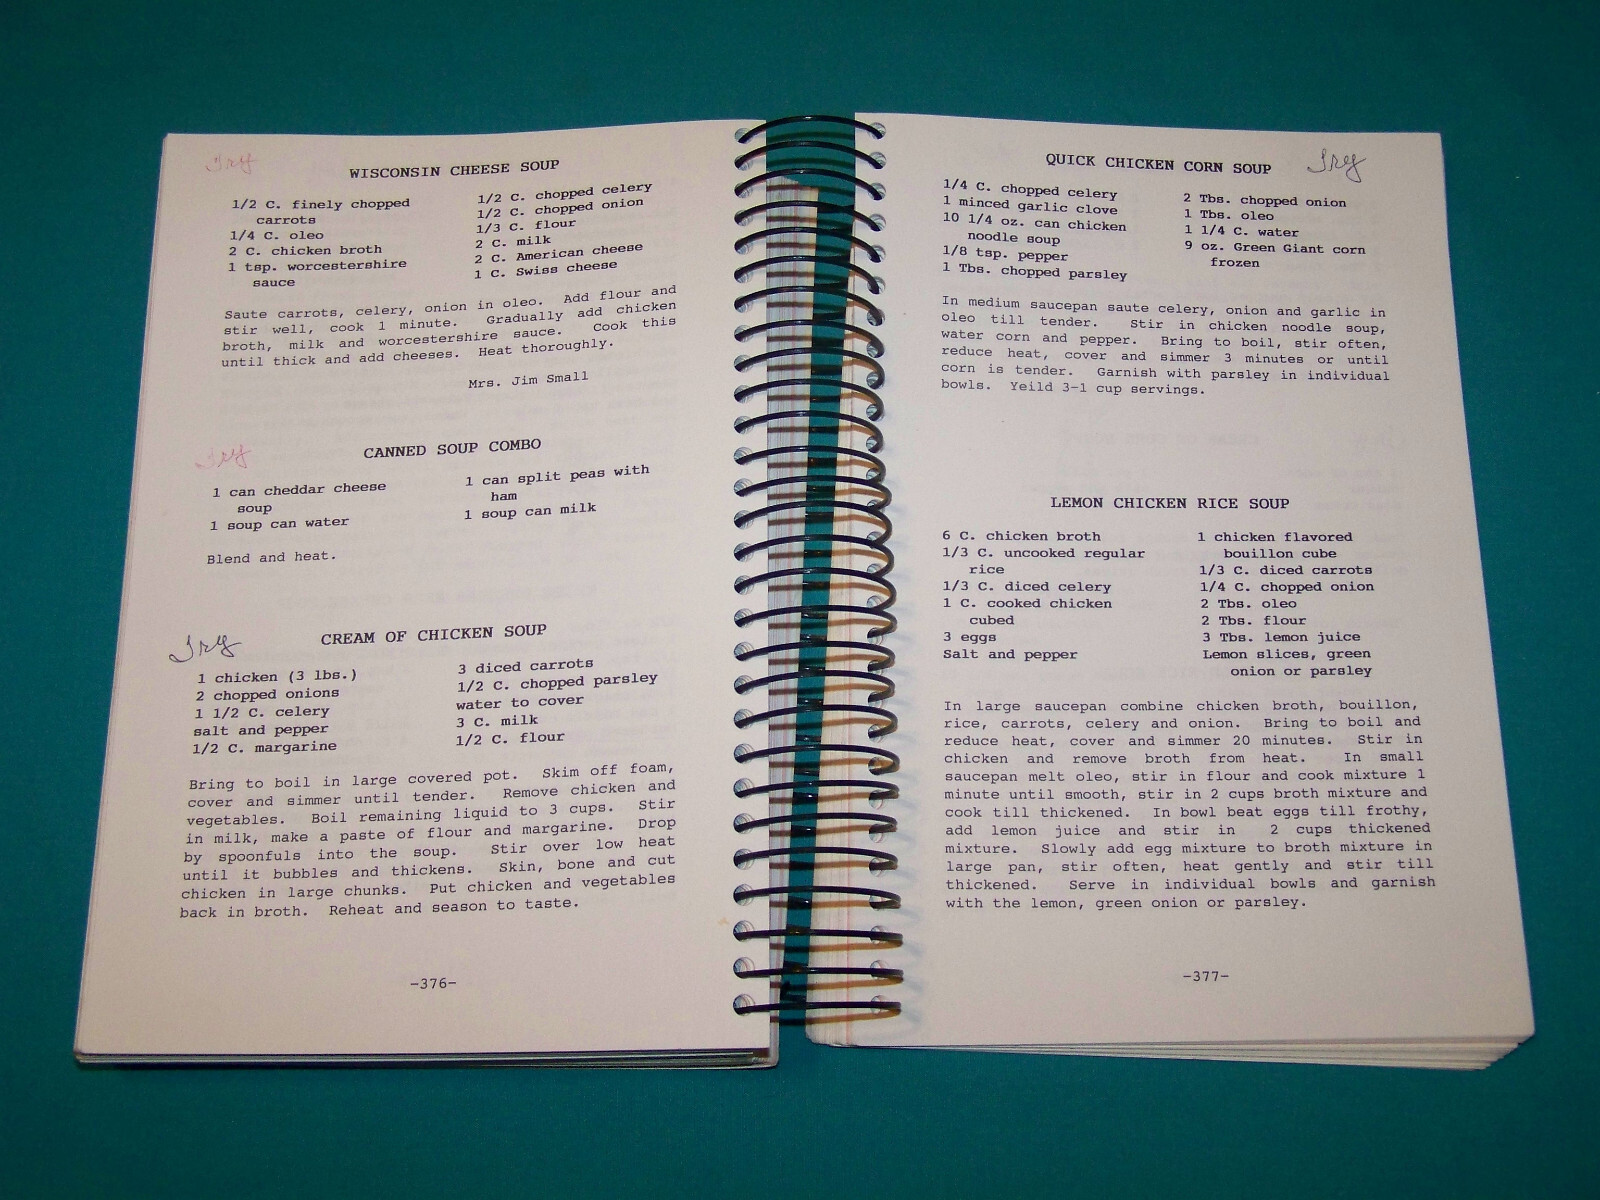 Try
WISCONSIN CHEESE SOUP
1/2 C. finely chopped
carrots
1/4 C. oleo
2 C. chicken broth
1 tsp. worcestershire
sauce
1/2 C. chopped celery
1/2 C. chopped onion
1/3 C. flour
2 C. milk
2 C. American cheese
1 C. Swiss cheese
Saute carrots, celery, onion in oleo. Add flour and
stir well, cook 1 minute. Gradually add chicken
broth, milk and worcestershire sauce. Cook this
until thick and add cheeses. Heat thoroughly.
Mrs. Jim Small
Try
CANNED SOUP COMBO
1 can cheddar cheese
soup
1 soup can water
1 can split peas with
ham
1 soup can milk
Blend and heat.
Try
CREAM OF CHICKEN SOUP
1 chicken (3 lbs.)
2 chopped onions
1 1/2 C. celery
salt and pepper
1/2 C. margarine
3 diced carrots
1/2 C. chopped parsley
water to cover
3 C. milk
1/2 C. flour
Bring to boil in large covered pot. Skim off foam,
cover and simmer until tender. Remove chicken and
vegetables. Boil remaining liquid to 3 cups. Stir
in milk, make a paste of flour and margarine. Drop
by spoonfuls into the soup. Stir over low heat
until it bubbles and thickens. Skin, bone and cut
chicken in large chunks. Put chicken and vegetables
back in broth. Reheat and season to taste.
-376-
QUICK CHICKEN CORN SOUP
Try
1/4 C. chopped celery
1 minced garlic clove
10 1/4 oz. can chicken
noodle soup
1/8 tsp. pepper
1 Tbs. chopped parsley
2 Tbs. chopped onion
1 Tbs. oleo
1 1/4 C. water
9 oz. Green Giant corn
frozen
In medium saucepan saute celery, onion and garlic in
oleo till tender. Stir in chicken noodle soup,
water corn and pepper. Bring to boil, stir often,
reduce heat, cover and simmer 3 minutes or until
corn is tender. Garnish with parsley in individual
bowls. Yeild 3-1 cup servings.
LEMON CHICKEN RICE SOUP
6 C. chicken broth
1/3 C. uncooked regular
rice
1/3 C. diced celery
1 C. cooked chicken
cubed
3 eggs
Salt and pepper
1 chicken flavored
bouillon cube
1/3 C. diced carrots
1/4 C. chopped onion
2 Tbs. oleo
2 Tbs. flour
3 Tbs. lemon juice
Lemon slices, green
onion or parsley
In large saucepan combine chicken broth, bouillon,
rice, carrots, celery and onion. Bring to boil and
reduce heat, cover and simmer 20 minutes. Stir in
chicken and remove broth from heat. In small
saucepan melt oleo, stir in flour and cook mixture 1
minute until smooth, stir in 2 cups broth mixture and
cook till thickened. In bowl beat eggs till frothy,
add lemon juice and stir in 2 cups thickened
mixture. Slowly add egg mixture to broth mixture in
large pan, stir often, heat gently and stir till
thickened. Serve in individual bowls and garnish
with the lemon, green onion or parsley.
-377-